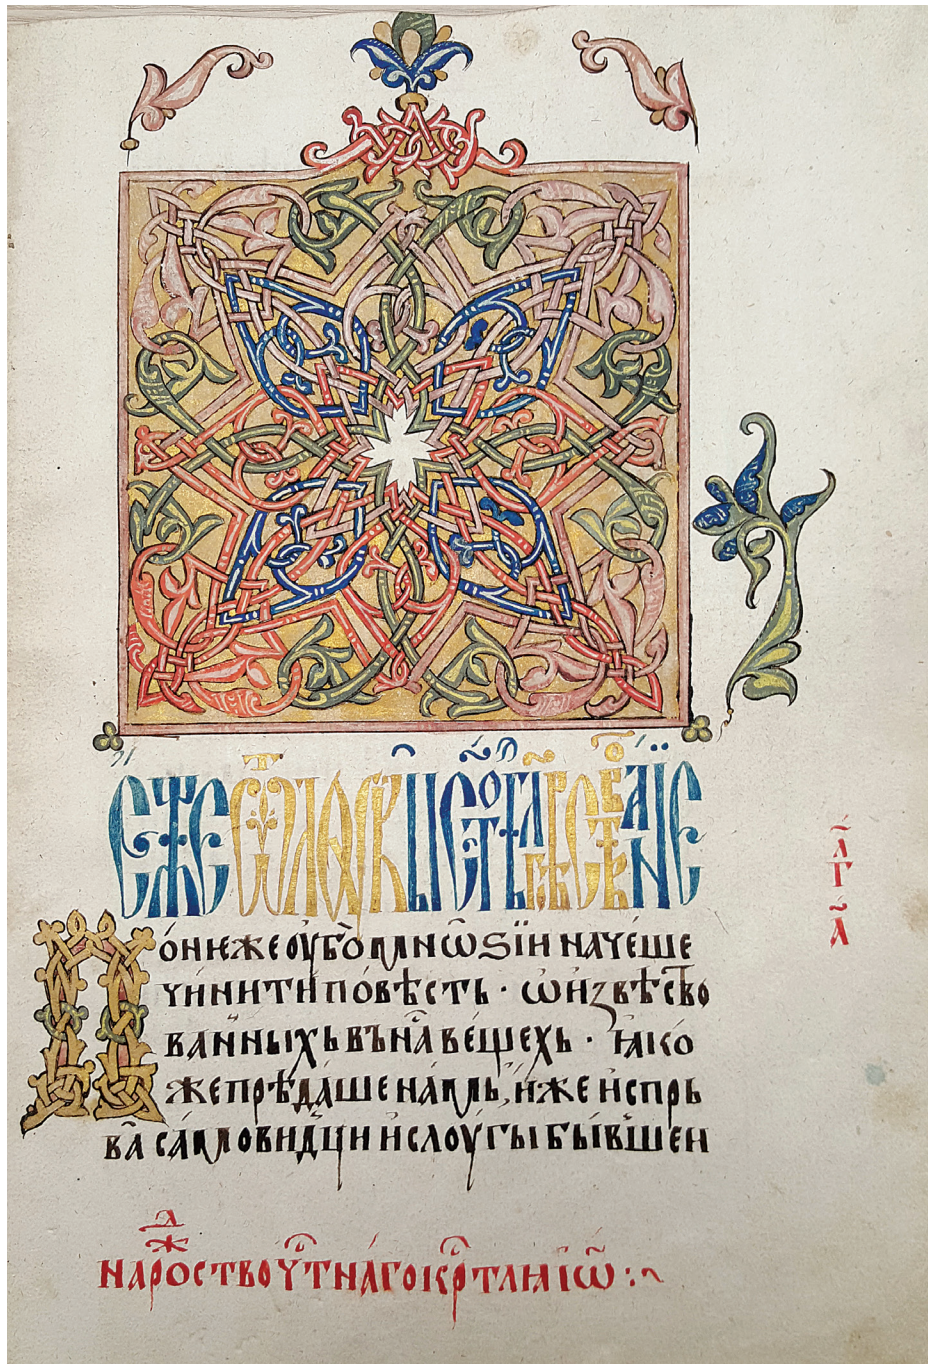 Еже ѿ лѹкы ст҃ое бл҃говѣствованїе
Понеже ѹ҆бо мнѡѕїи начеше
чи́нити по́вѣсть · ѡ҆ и҆звѣство
ван́ныхь въ на́ веще́хь · ꙗ҆ко́
же прѣда́ше на́мь, и҆же и҆спрь
ва́ са́мовидци и҆ слоугы бы́вшеи
за҃
гл҃
а҃
на рожⷣство чⷭ҇тнаго крⷭ҇тлꙗ і҆ѡ҃ :~